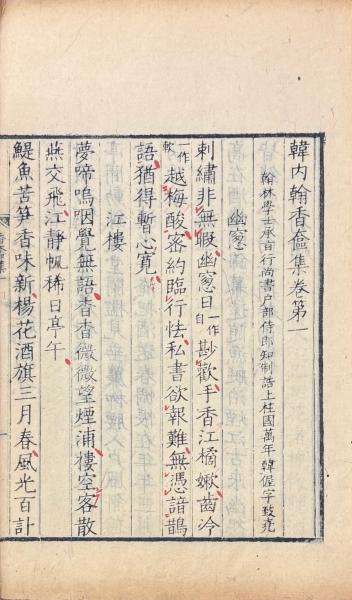 韓内翰香奩集卷第一
翰林學士承旨行尚書户部侍郎知制誥上柱國萬年韓偓字致堯
幽窻
刺繡非無暇幽窻自一作日尠歡手香江橘嫩齒冷
一作軟越梅酸密約臨行怯私書欲報難無憑諳鵲
語猶得暫心寛
江樓
夢啼嗚咽覺無語杳杳微微望煙浦樓空客散
燕交飛江静帆稀日亭午
鯷魚苦笋香味新楊花酒旗三月春風光百計